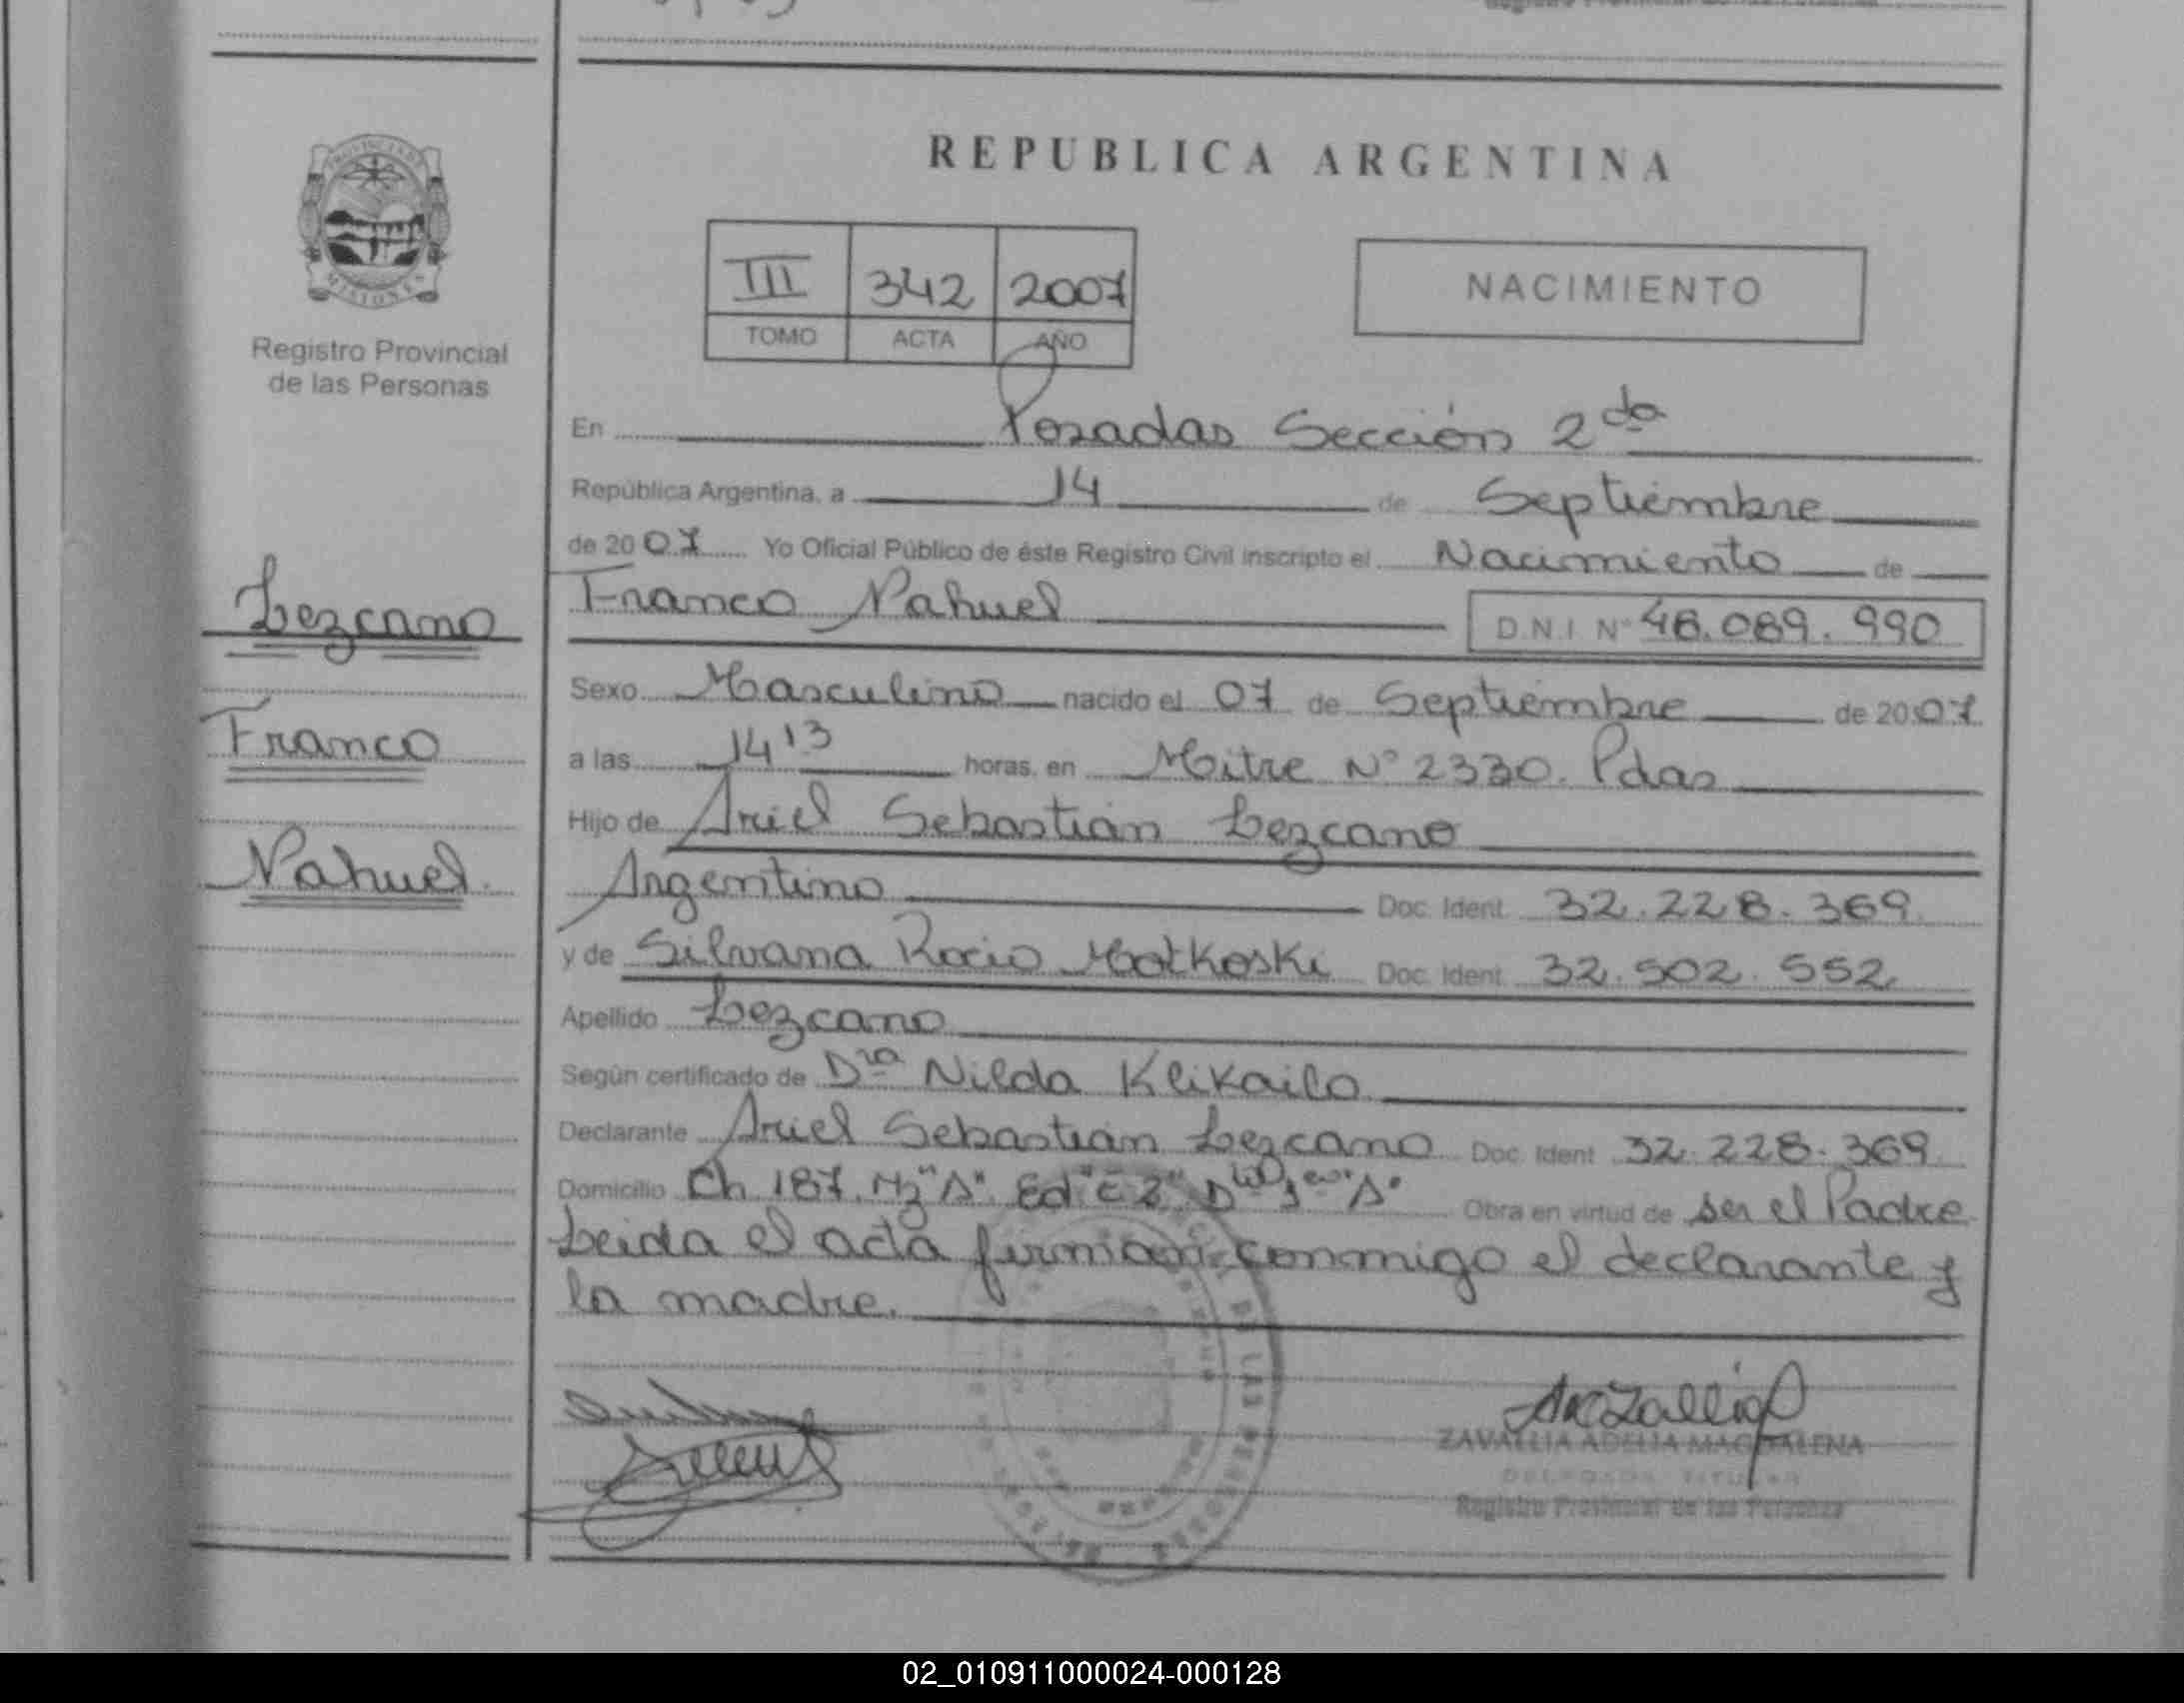 REPUBLICA ARGENTINA
III 342 2007
TOMO ACTA AÑO
NACIMIENTO
MISIONES
Registro Provincial
de las Personas
Lezcano
Franco
Nahuel
En Posadas Sección 2da
República Argentina, a 14 de Septiembre
de 2007 Yo Oficial Público de éste Registro Civil inscripto el Nacimiento de
Franco Nahuel D.N.I. Nº 48.089.990
Sexo Masculino nacido el 07 de Septiembre de 2007
a las 14 13 horas, en Mitre Nº 2330. Pdas
Hijo de Ariel Sebastián Lezcano
Argentino Doc. Ident. 32.228.369
y de Silvana Rocio Motkoski Doc. Ident. 32.502.552
Apellido Lezcano
Según certificado de Dra Nilda Klikailo
Declarante Ariel Sebastián Lezcano Doc. Ident 32.228.369
Domicilio Ch 187. Mz "A" Ed Obra en virtud de ser el Padre
Leida el acta firman conmigo el declarante y
la madre.
ZAVALLIA ADELIA MAGDALENA
DELEGADA TITULAR
Registro Provincial de las Personas
02_010911000024-000128